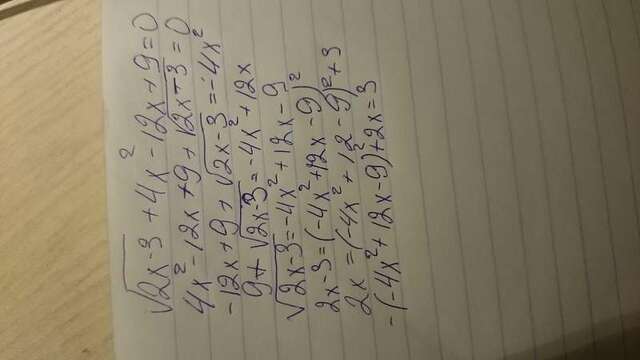 √2x-3 + 4x² - 12x + 9 = 0
4x² - 12x + 9 + √2x - 3 = 0
-12x + 9 + √2x-3 = -4x²
9 + √2x-3 = -4x² + 12x
√2x-3 = -4x² + 12x - 9
2x-3 = (-4x² + 12x - 9)²
2x = (-4x² + 12 - 9)² + 3
-(-4x² + 12x - 9)² + 2x = 3